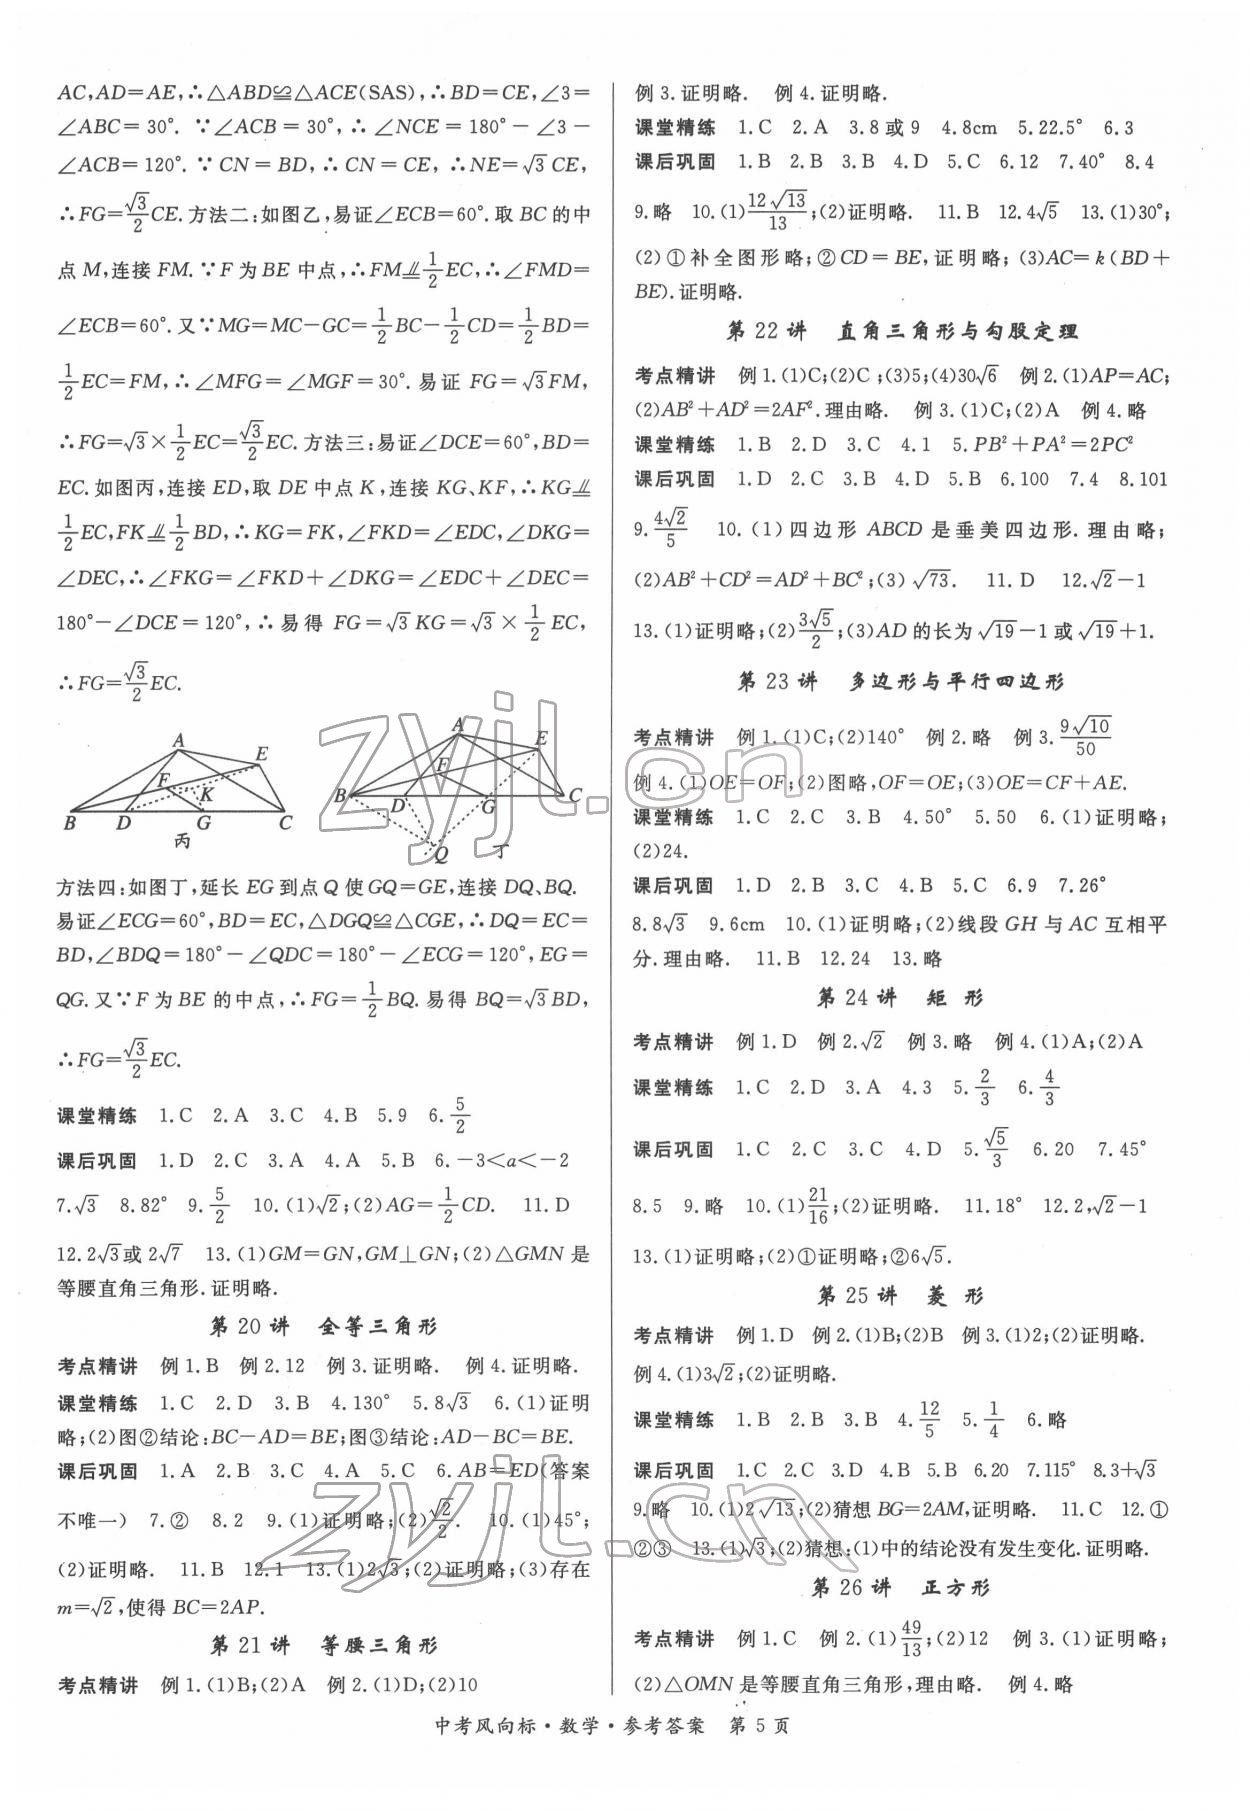 AC,AD=AE,∴△ABD≌△ACE(SAS),∴BD=CE,∠3=
∠ABC=30°. ∵∠ACB=30°,∴∠NCE=180°-∠3-
∠ACB=120°. ∵CN=BD,∴CN=CE, ∴NE=√3CE,
∴FG=√3/2CE.方法二:如图乙,易证∠ECB=60°.取BC的中
点M,连接FM.∵F为BE中点,∴FM⫽1/2EC,∴∠FMD=
∠ECB=60°.又∵MG=MC-GC=1/2BC-1/2CD=1/2BD=
1/2EC=FM,∴∠MFG=∠MGF=30°.易证FG=√3FM,
∴FG=√3×1/2EC=√3/2EC.方法三:易证∠DCE=60°,BD=
EC.如图丙,连接ED,取DE中点K,连接KG、KF,∴KG⫽
1/2EC,FK⫽1/2BD,∴KG=FK,∠FKD=∠EDC,∠DKG=
∠DEC,∴∠FKG=∠FKD+∠DKG=∠EDC+∠DEC=
180°-∠DCE=120°,∴易得FG=√3KG=√3×1/2EC,
∴FG=√3/2EC.
A E F K B D G C 丙
A E F B D G C Q 丁
方法四:如图丁,延长EG到点Q使GQ=GE,连接DQ、BQ.
易证∠ECG=60°,BD=EC,△DGQ≌△CGE,∴DQ=EC=
BD,∠BDQ=180°-∠QDC=180°-∠ECG=120°,EG=
QG.又∵F为BE的中点,∴FG=1/2BQ.易得BQ=√3BD,
∴FG=√3/2EC.
课堂精练 1.C 2.A 3.C 4.B 5.9 6.5/2
课后巩固 1.D 2.C 3.A 4.A 5.B 6.-3<a<-2
7.√3 8.82° 9.5/2 10.(1)√2;(2)AG=1/2CD. 11.D
12.2√3或2√7 13.(1)GM=GN,GM⊥GN;(2)△GMN是
等腰直角三角形.证明略.
第20讲 全等三角形
考点精讲 例1.B 例2.12 例3.证明略. 例4.证明略.
课堂精练 1.C 2.D 3.B 4.130° 5.8√3 6.(1)证明
略;(2)图②结论:BC-AD=BE;图③结论:AD-BC=BE.
课后巩固 1.A 2.B 3.C 4.A 5.C 6.AB=ED(答案
不唯一) 7.② 8.2 9.(1)证明略;(2)√2/2. 10.(1)45°;
(2)证明略. 11.B 12.1 13.(1)2√3;(2)证明略;(3)存在
m=√2,使得BC=2AP.
第21讲 等腰三角形
考点精讲 例1.(1)B;(2)A 例2.(1)D;(2)10
例3.证明略. 例4.证明略.
课堂精练 1.C 2.A 3.8或9 4.8cm 5.22.5° 6.3
课后巩固 1.B 2.B 3.B 4.D 5.C 6.12 7.40° 8.4
9.略 10.(1)12√13/13;(2)证明略. 11.B 12.4√5 13.(1)30°;
(2)①补全图形略;②CD=BE,证明略;(3)AC=k(BD+
BE).证明略.
第22讲 直角三角形与勾股定理
考点精讲 例1.(1)C;(2)C;(3)5;(4)30√6 例2.(1)AP=AC;
(2)AB²+AD²=2AF².理由略. 例3.(1)C;(2)A 例4.略
课堂精练 1.B 2.D 3.C 4.1 5.PB²+PA²=2PC²
课后巩固 1.D 2.C 3.B 4.D 5.B 6.100 7.4 8.101
9.4√2/5 10.(1)四边形ABCD是垂美四边形.理由略;
(2)AB²+CD²=AD²+BC²;(3)√73. 11.D 12.√2-1
13.(1)证明略;(2)3√5/2;(3)AD的长为√19-1或√19+1.
第23讲 多边形与平行四边形
考点精讲 例1.(1)C;(2)140° 例2.略 例3.9√10/50
例4.(1)OE=OF;(2)图略,OF=OE;(3)OE=CF+AE.
课堂精练 1.C 2.C 3.B 4.50° 5.50 6.(1)证明略;
(2)24.
课后巩固 1.D 2.B 3.C 4.B 5.C 6.9 7.26°
8.8√3 9.6cm 10.(1)证明略;(2)线段GH与AC互相平
分.理由略. 11.B 12.24 13.略
第24讲 矩形
考点精讲 例1.D 例2.√2 例3.略 例4.(1)A;(2)A
课堂精练 1.C 2.D 3.A 4.3 5.2/3 6.4/3
课后巩固 1.C 2.C 3.C 4.D 5.√5/3 6.20 7.45°
8.5 9.略 10.(1)21/16;(2)证明略. 11.18° 12.2,√2-1
13.(1)证明略;(2)①证明略;②6√5.
第25讲 菱形
考点精讲 例1.D 例2.(1)B;(2)B 例3.(1)2;(2)证明略.
例4.(1)3√2;(2)证明略.
课堂精练 1.B 2.B 3.B 4.12/5 5.1/4 6.略
课后巩固 1.C 2.C 3.D 4.B 5.B 6.20 7.115° 8.3+√3
9.略 10.(1)2√13;(2)猜想BG=2AM,证明略. 11.C 12.①
②③ 13.(1)√3;(2)猜想:(1)中的结论没有发生变化.证明略.
第26讲 正方形
考点精讲 例1.C 例2.(1)49/13;(2)12 例3.(1)证明略;
(2)△OMN是等腰直角三角形,理由略. 例4.略
中考风向标·数学·参考答案 第5页
zyjl.cn
zyjl.cn